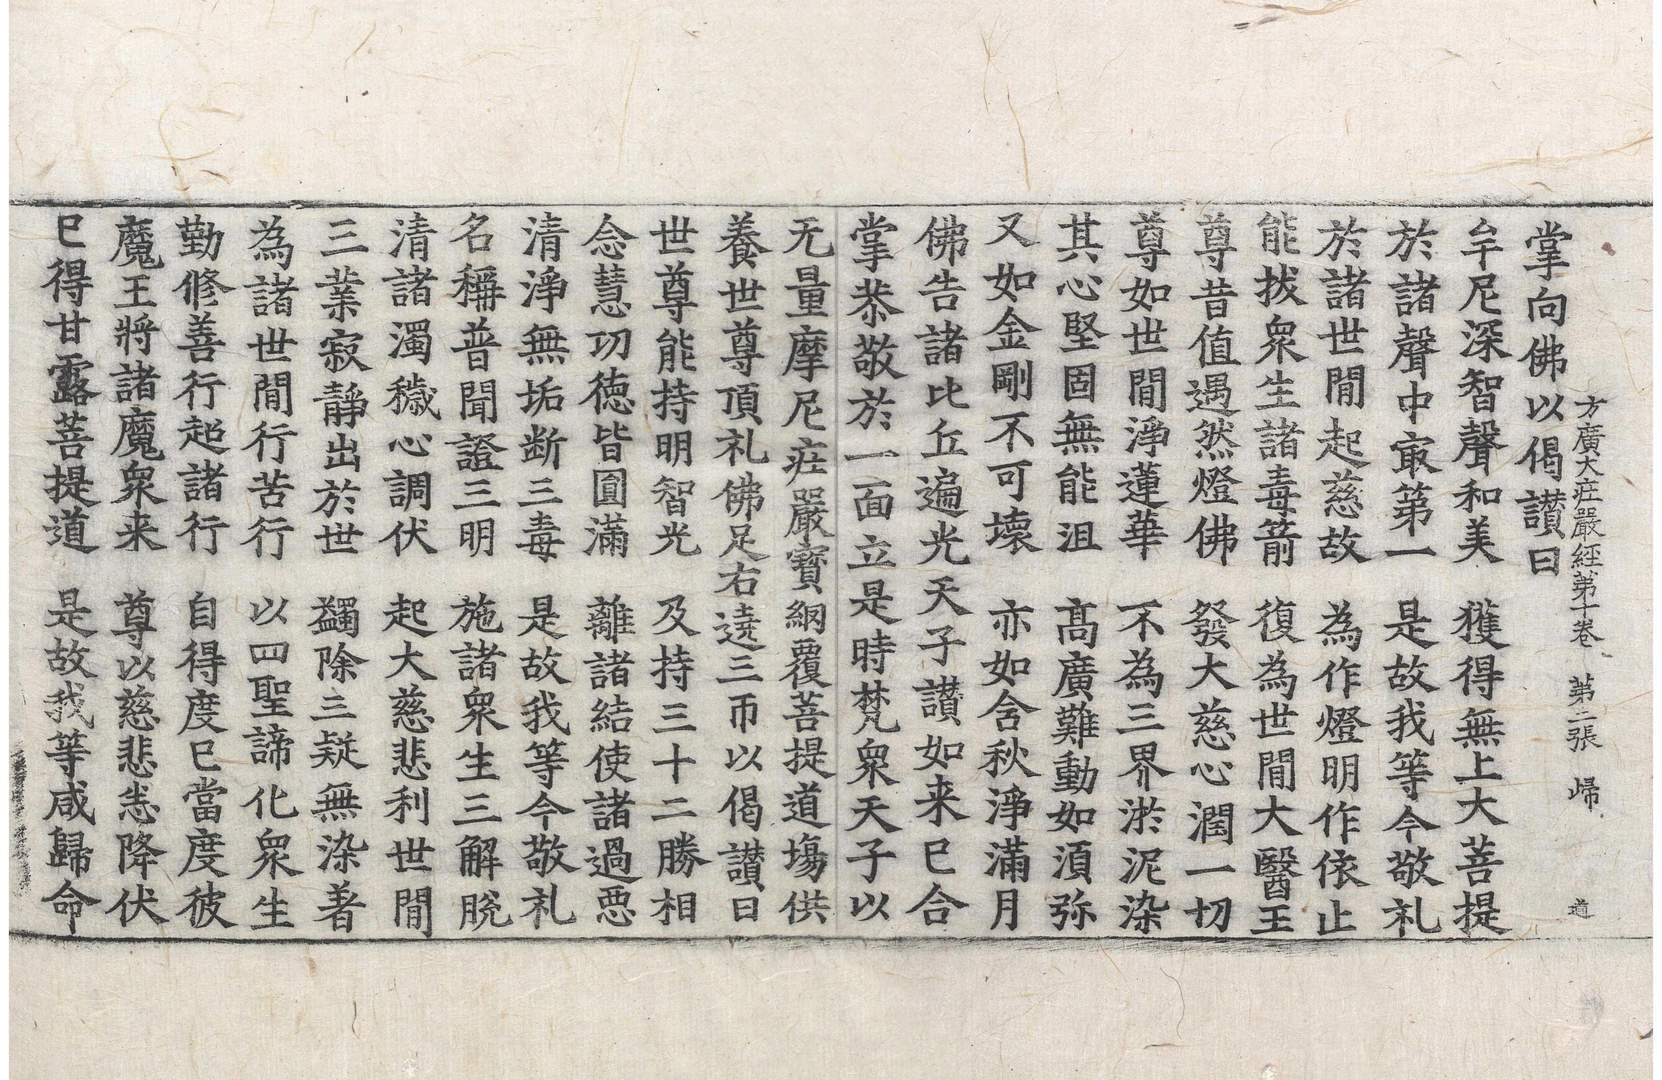 方廣大荘嚴經第十卷　第二張　歸　道
掌向佛以偈讃曰
牟尼深智聲和美　獲得無上大菩提
於諸聲中㝡第一　是故我等今敬礼
於諸世閒起慈故　為作燈明作依止
能拔衆生諸毒箭　復為世閒大醫王
尊昔值遇然燈佛　發大慈心潤一切
尊如世閒淨蓮華　不為三界淤泥染
其心堅固無能沮　髙廣難動如湏弥
又如金剛不可壞　亦如含秋淨滿月
佛告諸比丘遍光天子讃如来已合
掌恭敬於一面立是時梵衆天子以
无量摩尼荘嚴寶網覆菩提道塲供
養世尊頂礼佛足右遶三帀以偈讃曰
世尊能持明智光　及持三十二勝相
念慧功德皆圓滿　離諸結使諸過惡
清淨無垢断三毒　是故我等今敬礼
名稱普聞證三明　施諸衆生三解脫
清諸濁穢心調伏　起大慈悲利世閒
三業寂靜出於世　蠲除三疑無染著
為諸世閒行苦行　以四聖諦化衆生
勤修善行超諸行　自得度已當度彼
魔王將諸魔衆来　尊以慈悲悉降伏
已得甘露菩提道　是故我等咸歸命